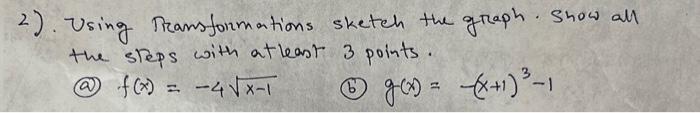 2). Using Transformations sketch the graph. Show all
the steps with atleast 3 points.
ⓐ f(x) = -4√x-1 ⓑ g(x) = -(x+1)³-1